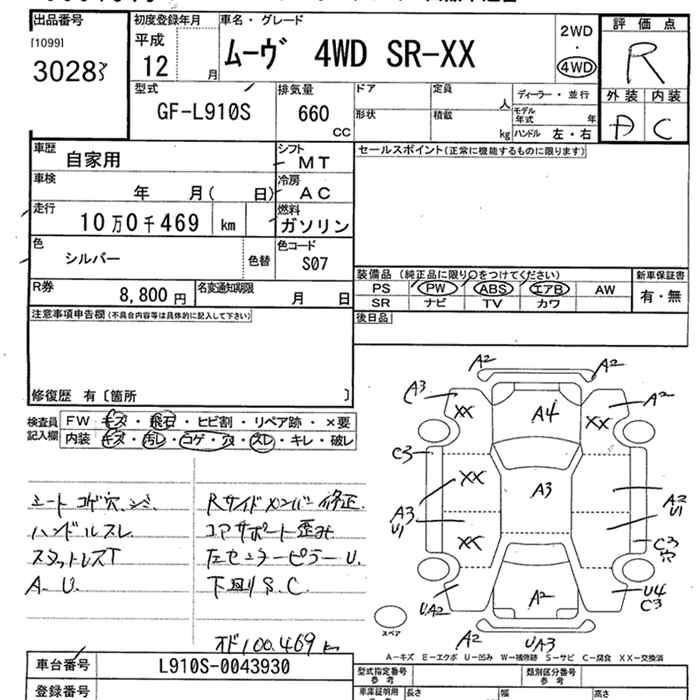 出品番号
[1099]
3028
初度登録年月
平成
12 月
車名・グレード
ムーヴ 4WD SR-XX
2WD
・
4WD
評価点
R
外装 内装
A C
型式
GF-L910S
排気量
660
CC
ドア
定員
人
形状
積載
kg
ディーラー・並行
モデル年式 年
ハンドル 左・右
車歴 自家用
シフト MT
車検 年 月( 日)
冷房 AC
走行 10万0千469 km
燃料 ガソリン
色 シルバー 色替
色コード S07
R券 8,800円
名変通知期限 月 日
セールスポイント(正常に機能するものに限ります)
装備品 (純正品に限り○をつけてください)
PS PW ABS エアB AW
SR ナビ TV カワ
新車保証書
有・無
後日品
注意事項申告欄(不具合内容等は具体的に記入して下さい)
修復歴 有〔箇所 〕
検査員記入欄
FW キズ・飛石・ヒビ割・リペア跡・×要
内装 キズ・汚レ・コゲ・穴・スレ・キレ・破レ
シート コゲ穴、シミ
ハンドルスレ
スタットレスT
A. U.
Rサイドメンバー修正.
コアサポート歪み
左センターピラーU.
下回りS.C.
オド100.469k
A2 A2
A3 A2
XX A4 XX
C3
XX A3
A3 U1
A2 U1
XX
C3 穴
U4 C3
U.A2
A2
A2 UA3
スペア
A-キズ E-エクボ U-凹み W-補修跡 S-サビ C-腐食 XX-交換済
車台番号 L910S-0043930
登録番号
型式指定番号 参考
類別区分番号 参考
車庫証明用 長さ 幅 高さ